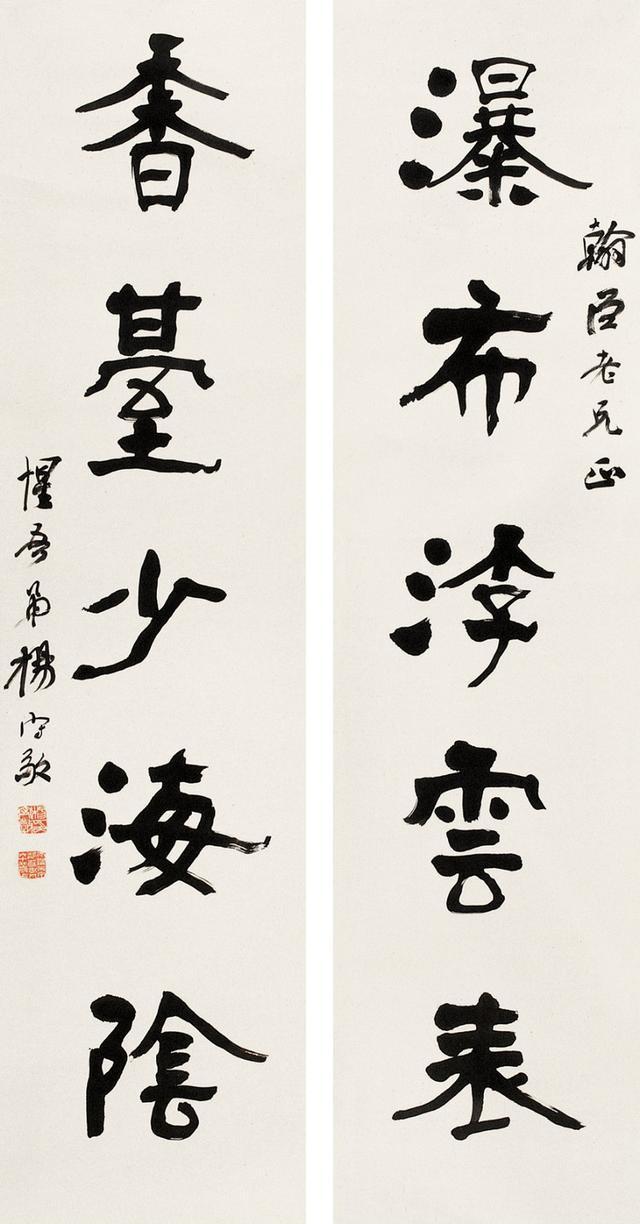 瀑布浮雲表
翰臣老兄正
香臺少海陰
惺吾弟楊守敬